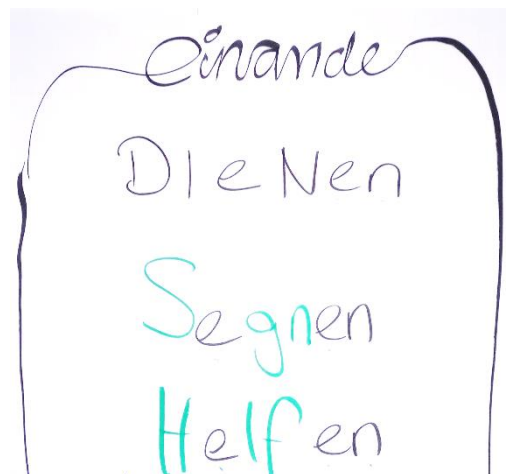 einande
DIeNen
Segnen
Helfen